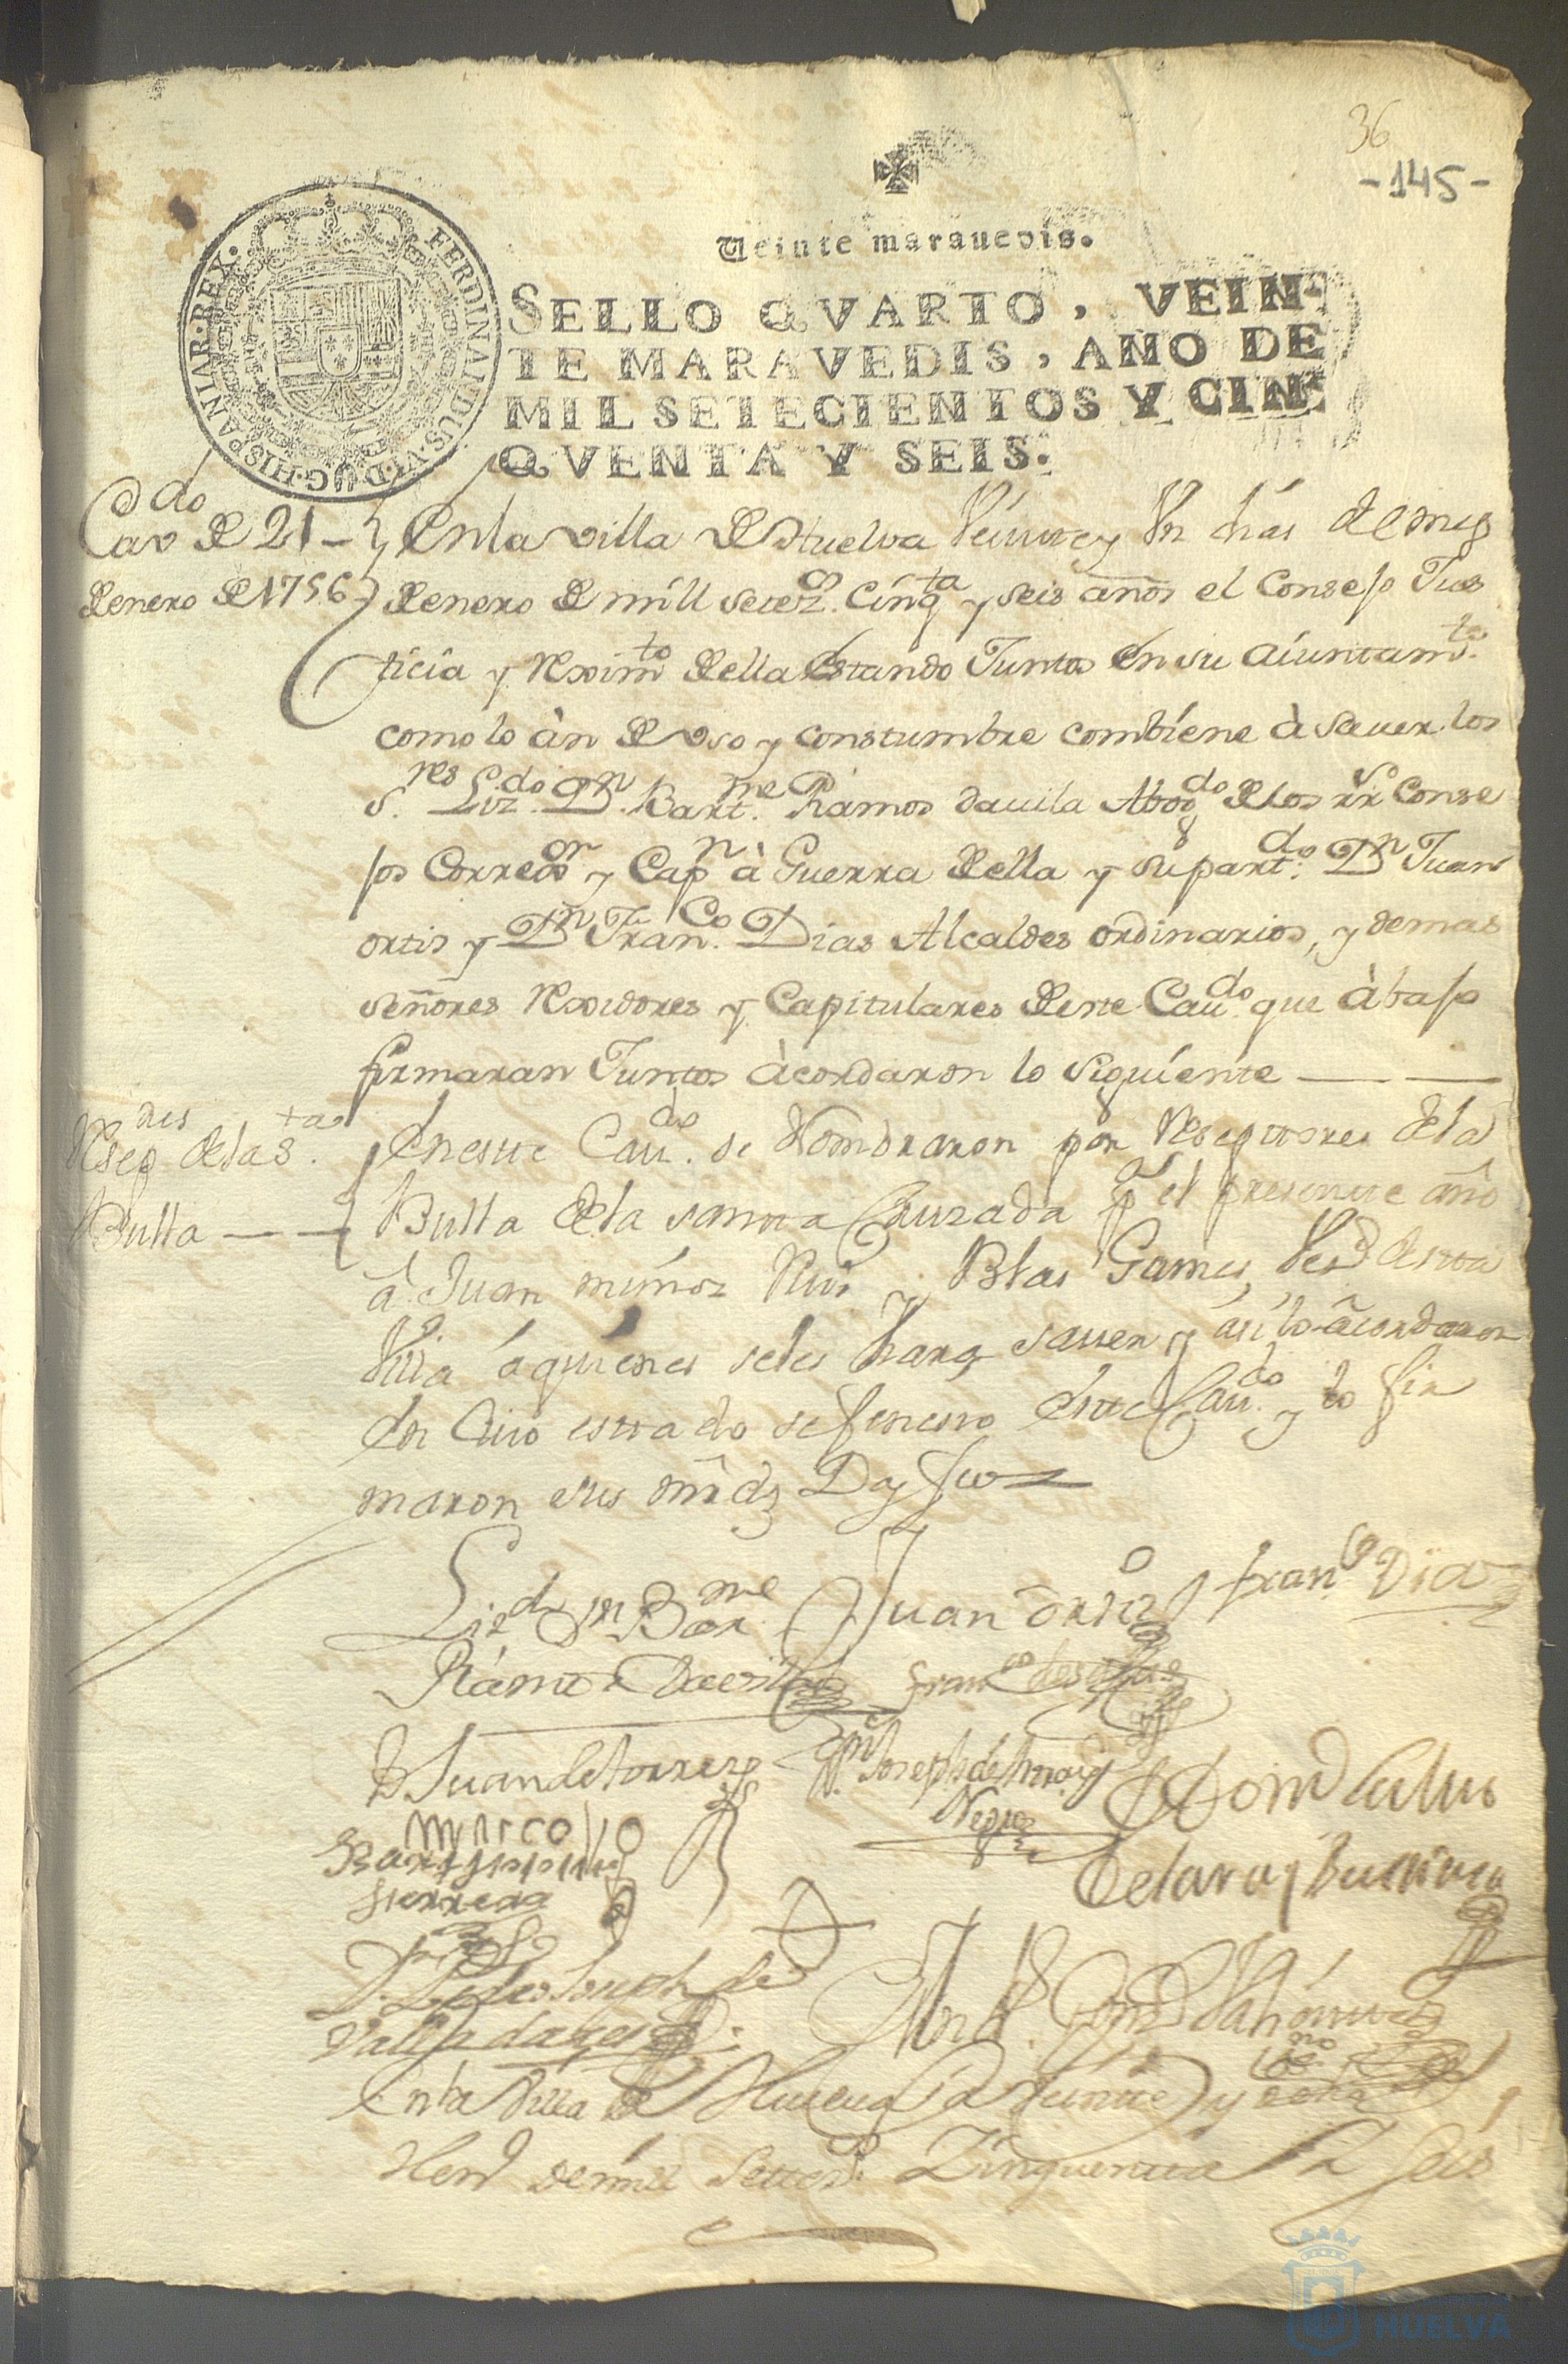 36
-145-
Veinte marauedis.
SELLO QVARTO, VEIN-
TE MARAVEDIS, AÑO DE
MIL SETECIENTOS Y CIN-
QVENTA Y SEIS.
FERDINANDUS·VI·D·G·HISPANIAR·REX·
Cavdo de 21 -
de enero de 1756
En la villa de Huelva Veinte y Un dias del mes
de enero de mill setezos. Cinqta y seis años el Consejo Jus
ticia y Reximto della estando Juntos en su aiuntamto.
como lo àn de uso y constumbre combiene à sauer los
sres. Lizdo. Dn. Bartme. Ramos dauila Abogdo de los rrs Conse
jos Corregor y Capn à Guerra della y su partdo. Dn Juan
ortis y Dn Franco. Dias Alcaldes ordinarios, y demas
señores Rexidores y Capitulares deste Caudo. que àbajo
firmaran Juntos àcordaron lo siguiente
Resepres de la Sta.
Bulla
En este Caudo. se Nombraron por Reseptores de la
Bulla de la santa Cruzada pa el presente año
â Juan muñoz Ruis y Blas Games, Vesos desta
Villa á quienes se les hara sauer y asi lo acordaron
en cuio estado se feneсio este Caudo. y lo fir
maron sus mrds Doy fee
Lizdo Dn Barme
Ramos Davila
Juan ortiz
Franco Dias
Franco de
D Juan de torres
Dn. Joseph de
Negro
Marcos
Bartolome
Herrera
Dn Pedro de
Valladares
En la Villa de Huelva a Veinte y ocho
de mill setezos. Zinquenta y seis
HUELVA